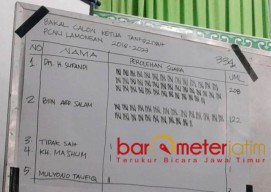 BAKAL CALON KETUA TANFIDZIYAH
PCNU LAMONGAN 2018-2023
NO NAMA PEROLEHAN SUARA JML
334
1 DR. H. SUPANDI 208
2 BIIN ABD SALAM 122
3 TIDAK SAH
4 KH. MA'SHUM
5 MULYONO TAUFIQ
barometerjatim
Terukur Bicara Jawa Timur